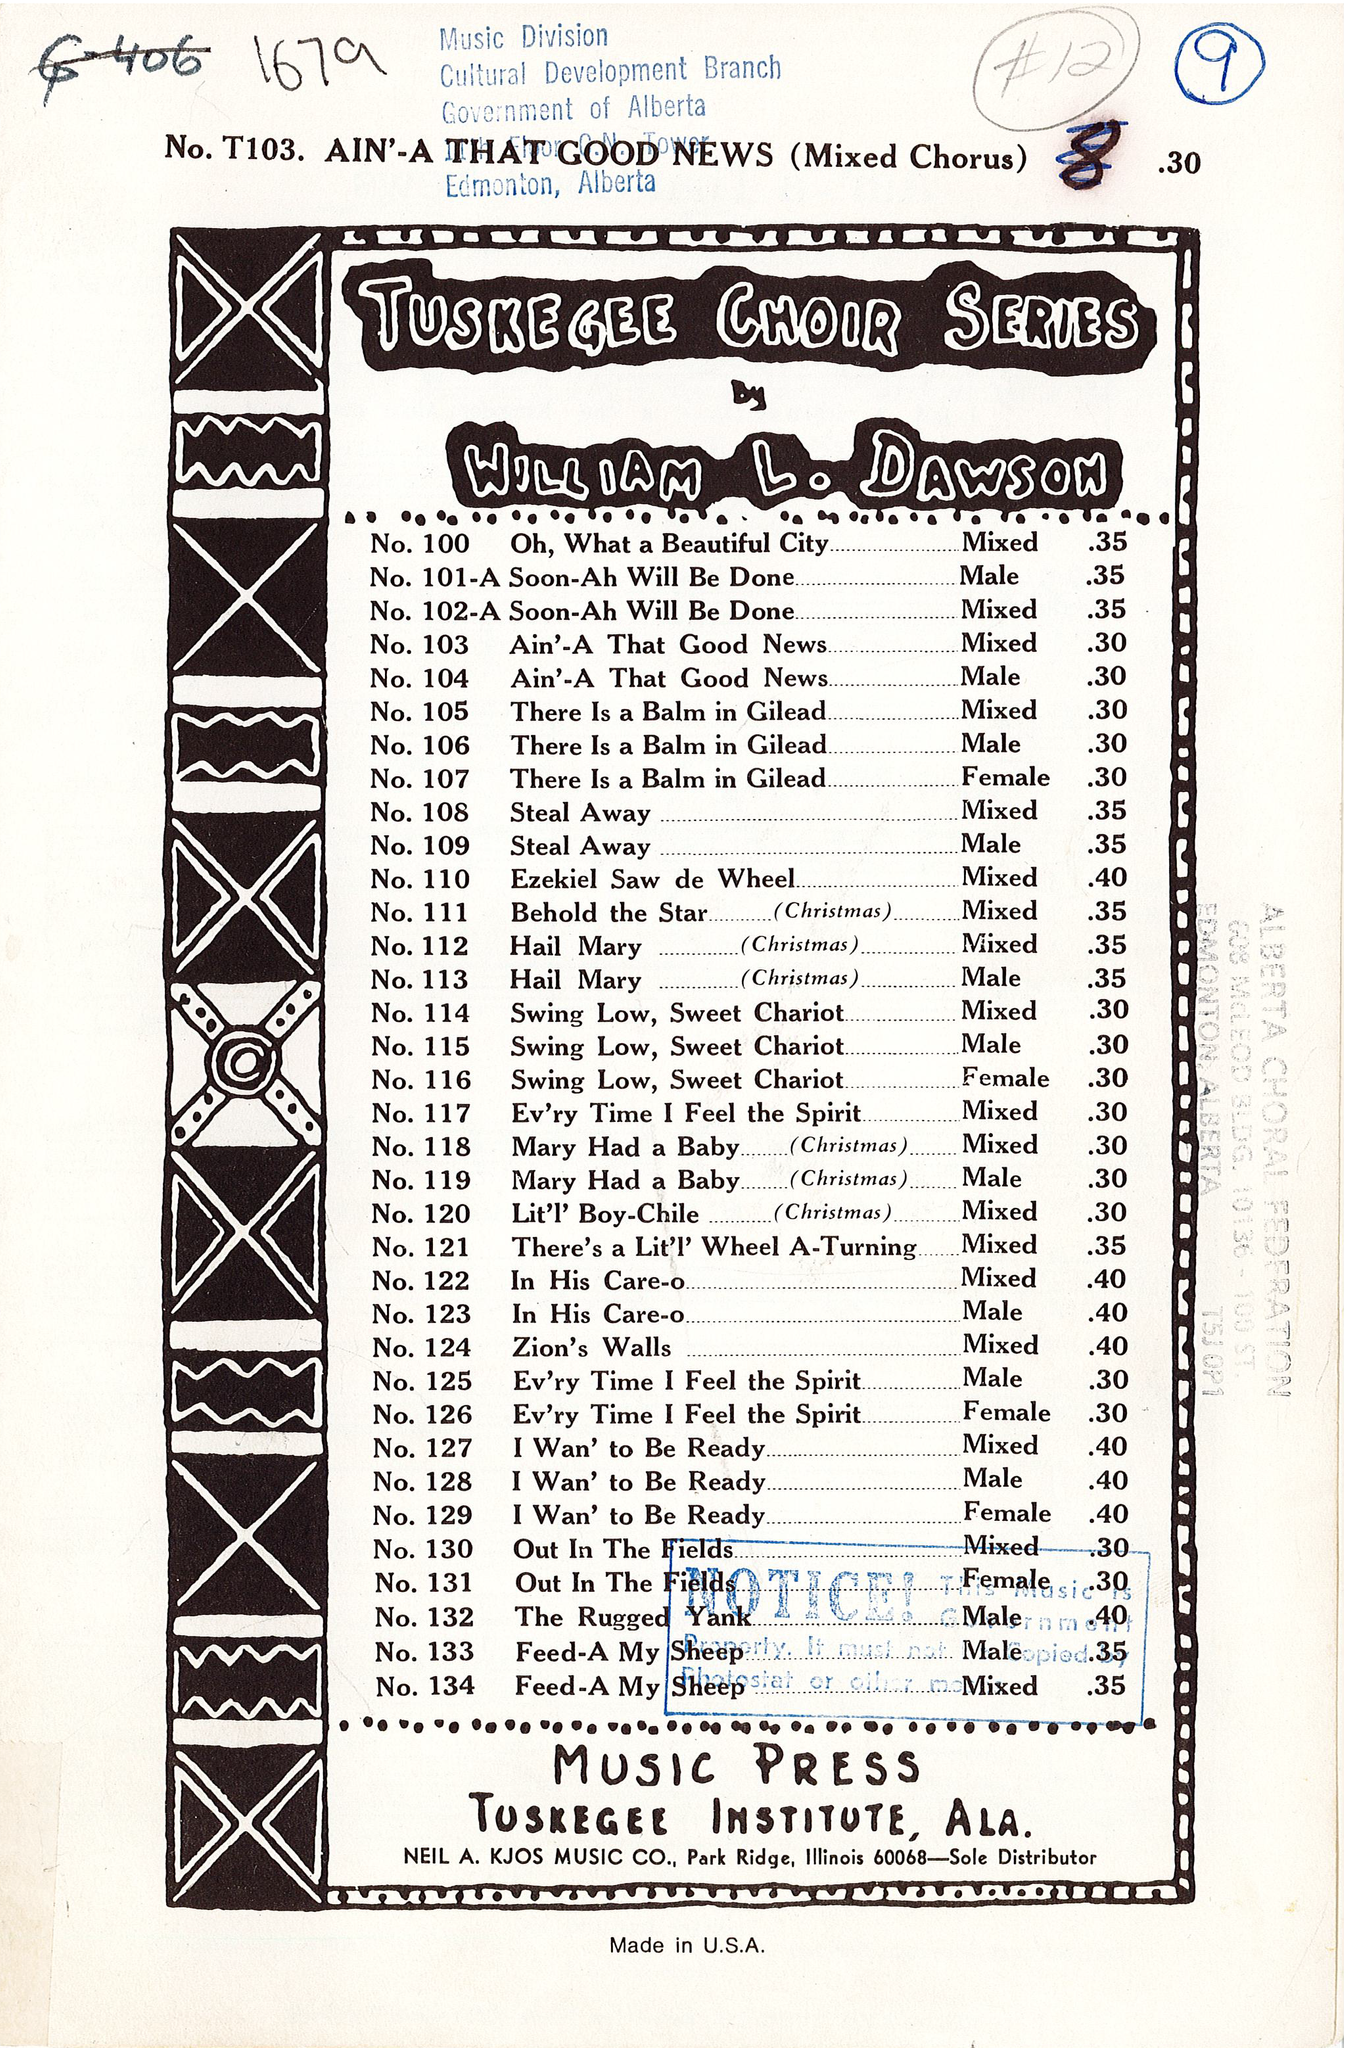 G-406 1679 #12 9
Music Division
Cultural Development Branch
Government of Alberta
11th Floor C.N. Tower
Edmonton, Alberta
No. T103. AIN'-A THAT GOOD NEWS (Mixed Chorus) 8 .30
TUSKEGEE CHOIR SERIES
By
WILLIAM L. DAWSON
No. 100 Oh, What a Beautiful City Mixed .35
No. 101-A Soon-Ah Will Be Done Male .35
No. 102-A Soon-Ah Will Be Done Mixed .35
No. 103 Ain'-A That Good News Mixed .30
No. 104 Ain'-A That Good News Male .30
No. 105 There Is a Balm in Gilead Mixed .30
No. 106 There Is a Balm in Gilead Male .30
No. 107 There Is a Balm in Gilead Female .30
No. 108 Steal Away Mixed .35
No. 109 Steal Away Male .35
No. 110 Ezekiel Saw de Wheel Mixed .40
No. 111 Behold the Star (Christmas) Mixed .35
No. 112 Hail Mary (Christmas) Mixed .35
No. 113 Hail Mary (Christmas) Male .35
No. 114 Swing Low, Sweet Chariot Mixed .30
No. 115 Swing Low, Sweet Chariot Male .30
No. 116 Swing Low, Sweet Chariot Female .30
No. 117 Ev'ry Time I Feel the Spirit Mixed .30
No. 118 Mary Had a Baby (Christmas) Mixed .30
No. 119 Mary Had a Baby (Christmas) Male .30
No. 120 Lit'l' Boy-Chile (Christmas) Mixed .30
No. 121 There's a Lit'l' Wheel A-Turning Mixed .35
No. 122 In His Care-o Mixed .40
No. 123 In His Care-o Male .40
No. 124 Zion's Walls Mixed .40
No. 125 Ev'ry Time I Feel the Spirit Male .30
No. 126 Ev'ry Time I Feel the Spirit Female .30
No. 127 I Wan' to Be Ready Mixed .40
No. 128 I Wan' to Be Ready Male .40
No. 129 I Wan' to Be Ready Female .40
No. 130 Out In The Fields Mixed .30
No. 131 Out In The Fields Female .30
No. 132 The Rugged Yank Male .40
No. 133 Feed-A My Sheep Male .35
No. 134 Feed-A My Sheep Mixed .35
NOTICE! This Music is
Government
Property. It must not Copied by
Photostat or other
MUSIC PRESS
TUSKEGEE INSTITUTE, ALA.
NEIL A. KJOS MUSIC CO., Park Ridge, Illinois 60068—Sole Distributor
Made in U.S.A.
ALBERTA CHORAL FEDERATION
608 McLEOD BLDG. 10136 - 100 ST.
EDMONTON, ALBERTA T5J 0P1